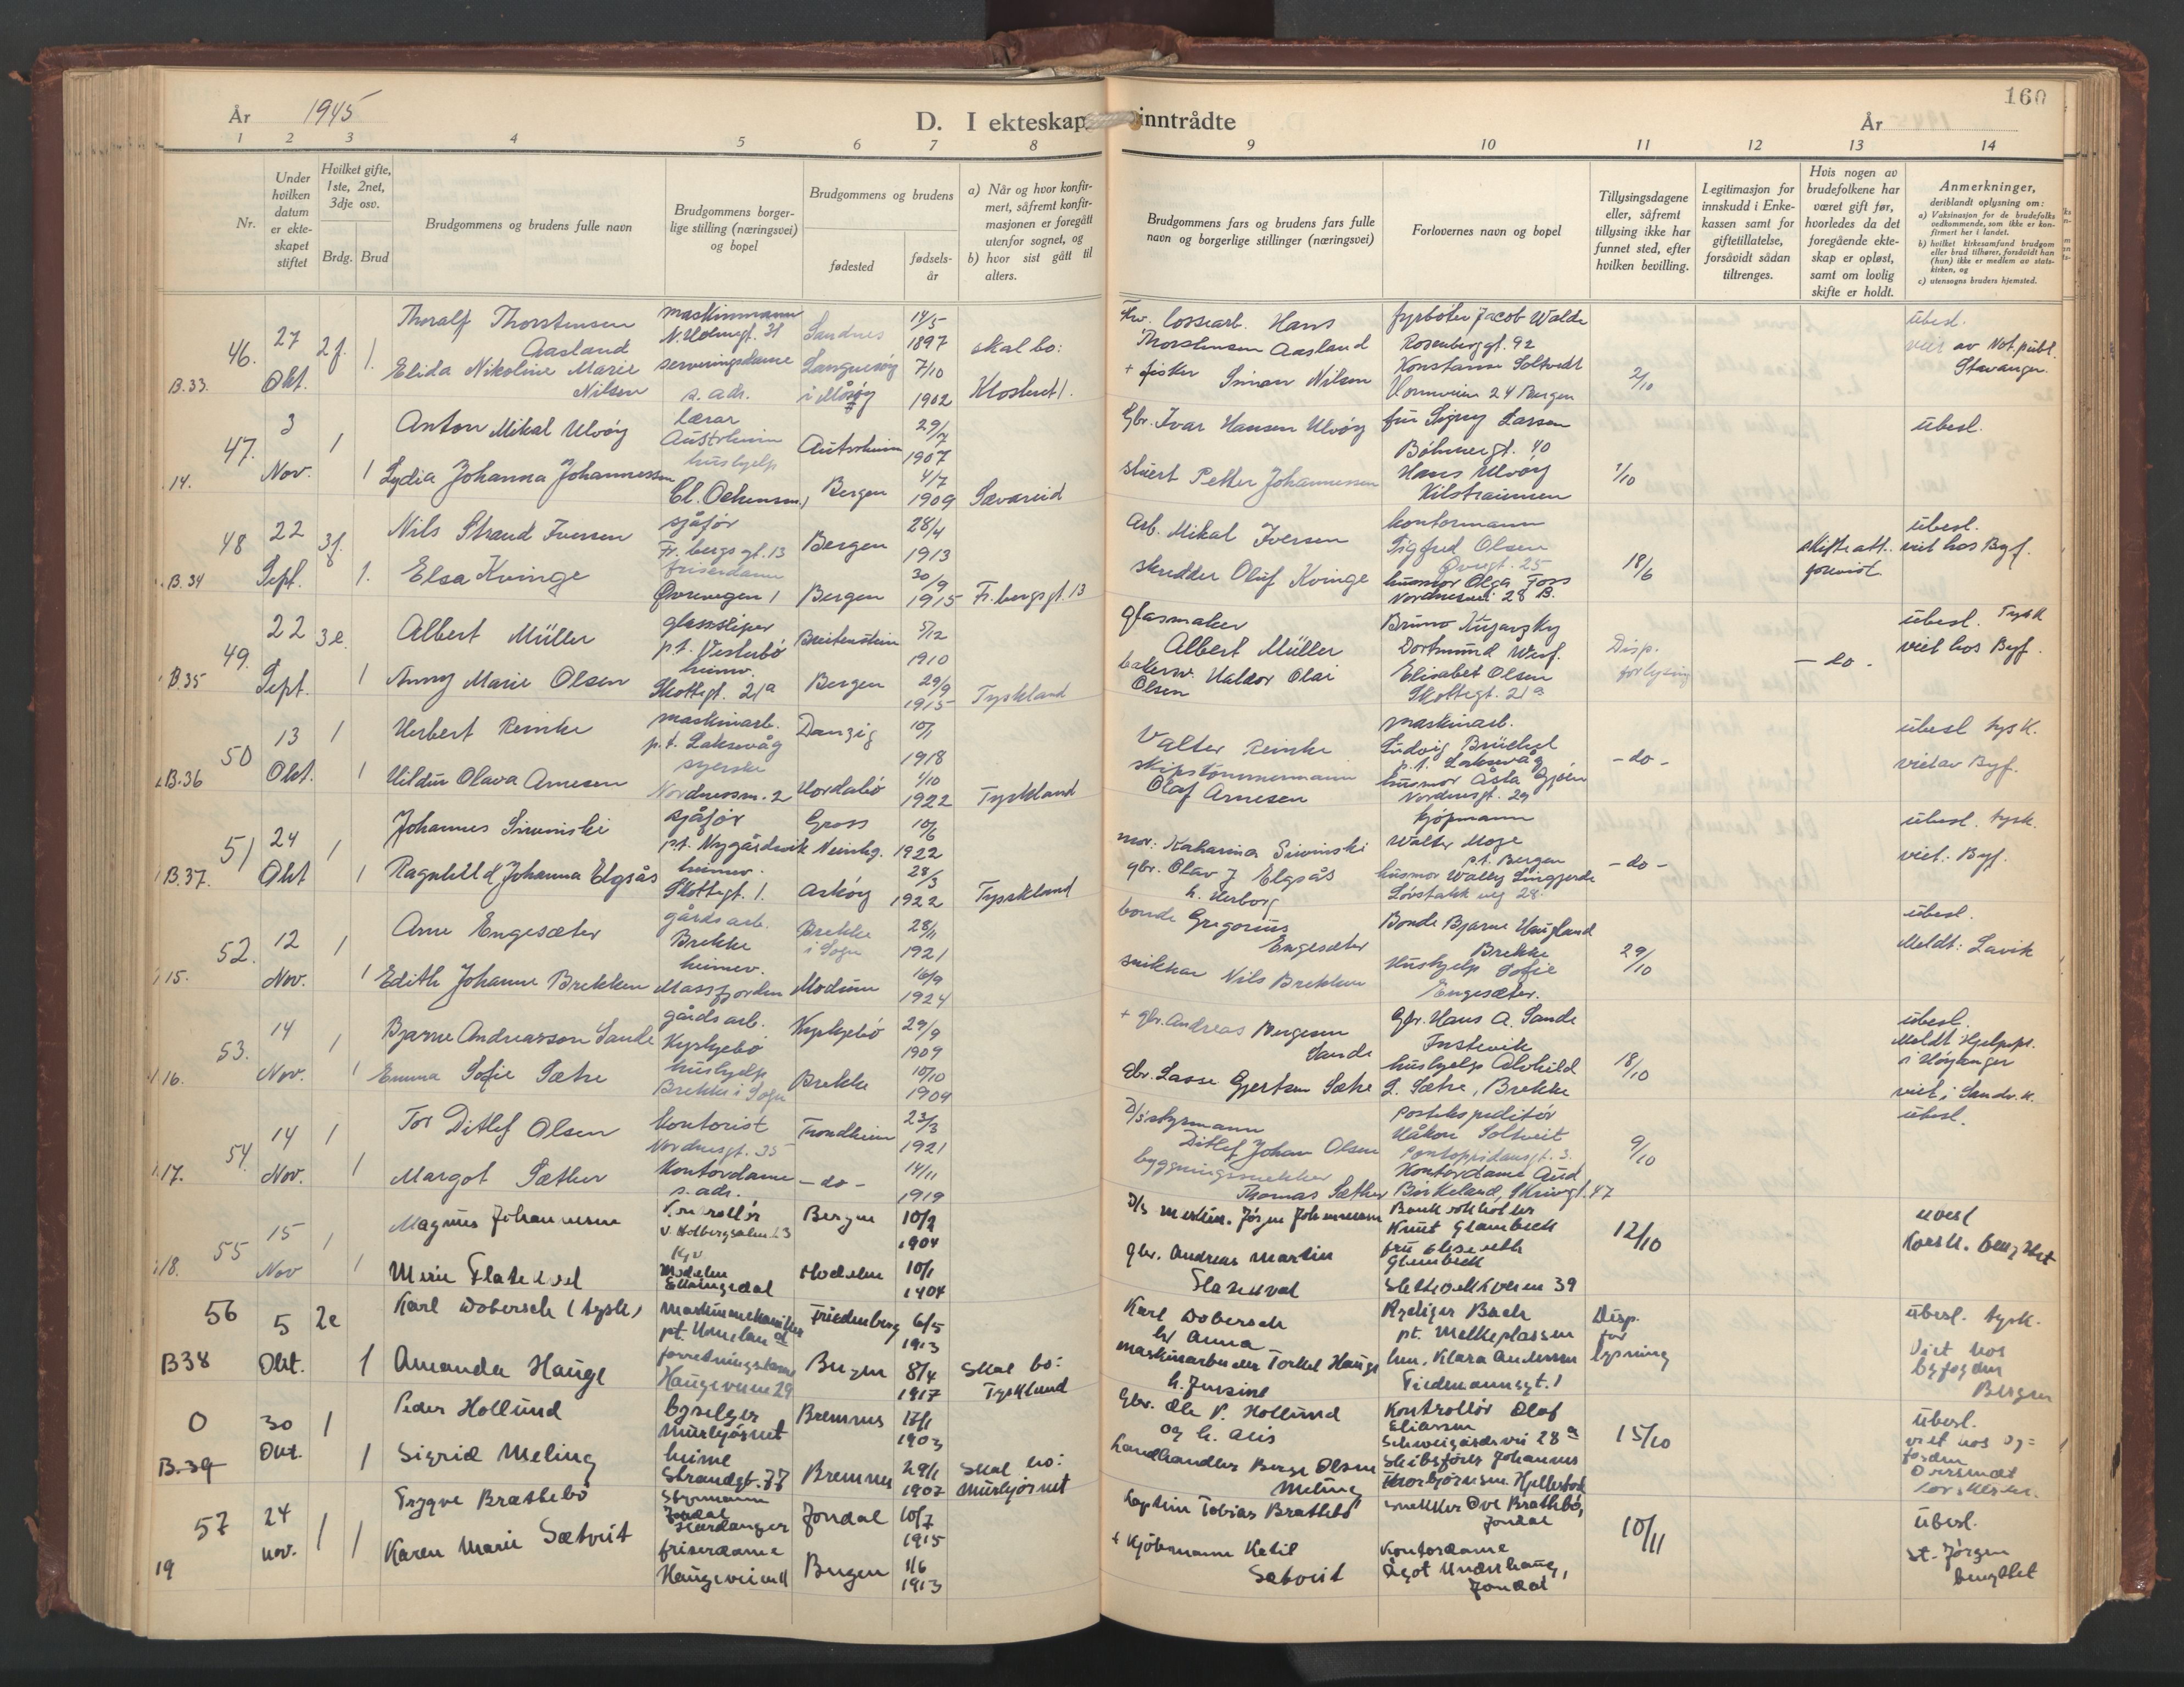 År 1945
D. I ekteskap inntrådte
160
År
1 2 3 4 5 6 7 8 9 10 11 12 13 14
Nr.
Under hvilken datum er ekteskapet stiftet
Hvilket gifte, 1ste, 2net, 3dje osv.
Brdg. Brud
Brudgommens og brudens fulle navn
Brudgommens borgerlige stilling (næringsvei) og bopel
Brudgommens og brudens
fødested
fødselsår
a) Når og hvor konfirmert, såfremt konfirmasjonen er foregått utenfor sognet, og
b) hvor sist gått til alters.
Brudgommens fars og brudens fars fulle navn og borgerlige stillinger (næringsvei)
Forlovernes navn og bopel
Tillysingsdagene eller, såfremt tillysing ikke har funnet sted, efter hvilken bevilling.
Legitimasjon for innskudd i Enkekassen samt for giftetillatelse, forsåvidt sådan tiltrenges.
Hvis nogen av brudefolkene har været gift før, hvorledes da det foregående ekteskap er opløst, samt om lovlig skifte er holdt.
Anmerkninger, deriblandt oplysning om:
a) Vaksinasjon for de brudefolks vedkommende, som ikke er konfirmert her i landet.
b) hvilket kirkesamfund brudgom eller brud tilhører, forsåvidt han (hun) ikke er medlem av statskirken, og
c) utensogns bruders hjemsted.
46. B.33
27 Okt. 2f. 1.
Thoralf Thorstensen Aasland
maskinmann
Sandnes 14/5 1897
skal bo:
lossearb. Hans Thorstensen Aasland
fyrbøter Jacob Walde
Rosenberggt. 92
ubesl.
viet av Not. publ. Stavanger.
Elida Nikoline Marie Nilsen
serveringsdame
s. adr.
i Måsøy 7/10 1902
Klosteret 1.
+ fisker Simon Nilsen
Konstanse Soltvedt
24 Bergen
2/10
47. 14.
3 Nov. 1 1
Anton Mikal Ulvøy
lærar
Austrheim
Austrheim 29/7 1907
Gbr. Ivar Hansen Ulvøy
fru Signy Larsen
Bøhmergt. 40
ubesl.
Lydia Johanna Johannessen
hushjelp
Bergen 4/7 1909
Sævareid
stuert Petter Johannessen
Hans Ulvøy
Kilstraumen
1/10
48 B.34
22 Sept. 3f. 1.
Nils Strand Iversen
sjåfør
Fr. bergs gt. 13
Bergen 28/4 1913
Arb. Mikal Iversen
kontormann
Sigfred Olsen
Øvregt. 25
18/6
skifte att. forevist.
ubesl.
viet hos Byf.
Elsa Kvinge
friserdame
Øvrevegen 1
Bergen 30/9 1915
Fr. bergsgt. 13
skredder Oluf Kvinge
husmor Olga Foss
Nordnesvei 28 B.
49. B.35
22 Sept. 3e. 1
Albert Müller
glassliper
p.t. Vesterbø
Breitenstein 5/12 1910
glasmaker Albert Müller
Bruno
Dortmund Westf.
Disp. for lysing
- do -
ubesl. Tysk
viet hos Byf.
Anny Marie Olsen
heimv.
Skottegt. 21a
Bergen 29/9 1915
Tyskland
Haldor Olai Olsen
Elisabet Olsen
Skottegt. 21a
50 B.36
13 Okt. 1 1
Herbert Reinke
maskinarb.
p.t. Laksevåg
Danzig 10/1 1918
Valter Reinke
maskinarb.
Ludvig
p.t. Laksevåg
- do -
ubesl tysk.
viet av Byf.
Hildur Olava Arnesen
syerske
Nordnessm. 2
Hordabø 1/10 1922
Tyskland
skipstømmermann Olaf Arnesen
husmor Åsta Gjøen
Nordnesgt. 29
51 B.37.
24 Okt 1 1
Johannes Siwinski
sjåfør
p.t. Nygårdsvik
Gross 10/6 1922
mor: Katharina Siwinski
kjøpmann
Walter
p.t. Bergen
- do -
ubesl. tysk.
viet: Byf.
Ragnhild Johanna Elgsås
heimev.
Skottegt. 1.
Askøy 28/3 1922
Tyskland
gbr. Olav J Elgsås
h. Herborg
husmor Wally
Løvstakk veg 28.
52. 15.
12 Nov. 1 1
Arne Engesæter
gårdsarb.
Brekke
Brekke i Sogn 28/11 1921
bonde Gregorius Engesæter
Bonde Bjarne Haugland
Brekke
29/10
ubesl.
Meldt: Lavik
Edith Johanne Brekken
heimev.
Massfjorden
Modum 16/9 1924
snikkar Nils Brekken
Hushjelp Sofie Engesæter.
53. 16.
14 Nov. 1 1
Bjarne Andreasson Sande
gårdsarb.
Kyrkjebø
Kyrkjebø 29/9 1909
+ gbr. Andreas Bergesen Sande
Gbr. Hans A. Sande
Instevik
18/10
ubesl.
Meldt Hjelpepr. i Høyanger
viet i Sandv. k.
Emma Sofie Sætre
hushjelp
Brekke i Sogn
Brekke 10/10 1904
Gbr. Lasse Gjertsen Sætre
hushjelp Alvhild L. Sætre, Brekke
54. 17.
14 Nov. 1 1
Tor Ditlef Olsen
kontorist
Nordnesgt. 35
Trondheim 23/3 1921
D/s styrmann Ditlef Johan Olsen
postekspeditør
Håkon Soltveit
Pontoppidansgt. 3.
9/10
ubesl.
Margot Sæther
Kontordame
s. adr.
- do - 14/11 1919
byggningssnekker Thomas Sæther
Kontordame Aud Birkeland, Skivegt. 47
55 18.
15 Nov 1 1
Magnus Johannesen
Kontrollør
Bergen 10/2 1904
D/s maskin. Jørgen Johannessen
Bankbokholder
Knut Glambeck
12/10
ubesl
Korsk. benyttet
Merie Flatekval
Modalen
Eksingedal
Modalen 10/1 1904
gbr. Andreas Martin Flatekval
fru Elisabeth Glambeck
39
56 B38
5 Okt. 2e 1
Karl Dobersch (tysk)
maskinmekaniker
Friedenberg 6/5 1913
Karl Dobersch
h/ Anna
Rydiger Bach
pt. Melkeplassen
Disp. for lysning
ubesl. tysk.
Viet hos byfogden Bergen
Amanda Hauge
forretningsdame
Haugeveien 29
Bergen 8/4 1917
Skal bo: Tyskland
maskinarbeider Torkel Hauge
h. Jensine
hm. Klara Andersen
Tiedemannsgt. 1
0 B.39
30 Okt. 1 1
Peder Hollund
byselger
Murhjørnet
Bremnes 17/1 1903
Gbr. Ole P. Hollund
og h. Alis
Kontrollør Olaf Eliassen
Schweigårdsvei 28a
15/10
ubesl.
viet hos byfogden
Sigrid Meling
heime
Strandgt. 77
Bremnes 29/1 1907
Skal bo: Murhjørnet
Landhandler Berge Olsen Meling
Skibsfører Johannes Thorbjørnsen
57 19
24 nov. 1 1
Trygve Brattebø
Styrmann
Jondal Hardanger
Jondal 10/7 1915
Kaptein Tobias Brattebø
snekker Ove Brattebø, Jondal
10/11
ubesl.
St. Jørgen benyttet
Karen Marie Sætveit
friserdame
Haugeveien 11
Bergen 1/6 1913
+ Kjøbmann Ketil Sætveit
Kontordame
Ågot Underhaug, Jondal